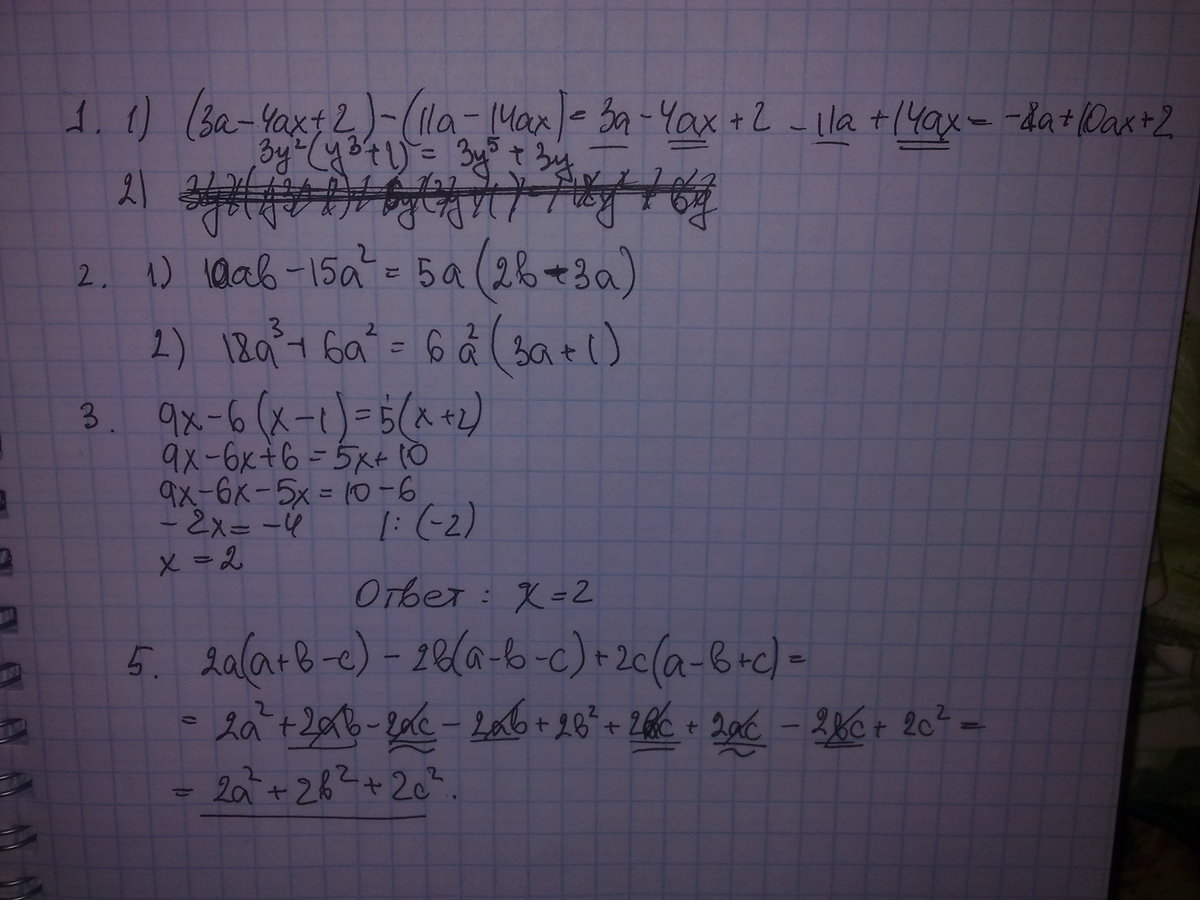 1. 1) (3a-4ax+2)-(11a-14ax)=3a-4ax+2-11a+14ax=-8a+10ax+2
3y²(y³+1)=3y⁵+3y
2)
2. 1) 10ab-15a²=5a(2b-3a)
2) 18a³+6a²=6a²(3a+1)
3. 9x-6(x-1)=5(x+2)
9x-6x+6=5x+10
9x-6x-5x=10-6
-2x=-4 |:(-2)
x=2
Ответ: x=2
5. 2a(a+b-c)-2b(a-b-c)+2c(a-b+c)=
=2a²+2ab-2ac-2ab+2b²+2bc+2ac-2bc+2c²=
=2a²+2b²+2c².